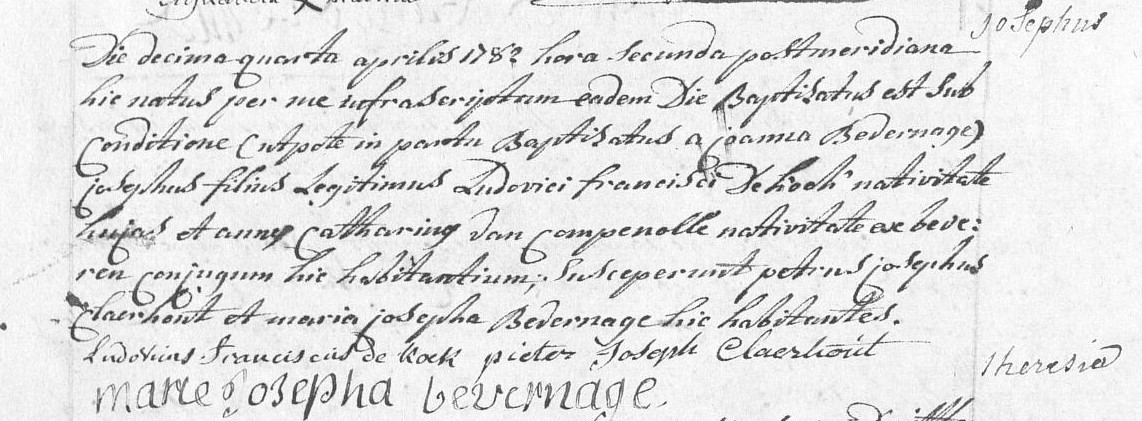 Josephus
Die decima quarta aprilis 1782 hora secunda postmeridiana
hic natus per me infrascriptum eadem Die Baptisatus est sub
Conditione (utpote in partu Baptisatus a Joanna Bevernage)
josephus filius Legitimus Ludovici francisci De kock nativitate
hujas et annę Catharinę Van Compenolle nativitate ex beve:
ren conjugum hic habitantium; Susceperunt petrus josephus
Claerhout et maria josepha Bevernage hic habitantes.
Ludovicus Franciscus de kock pieter Joseph Claerhout
theresia
marie Josepha bevernage